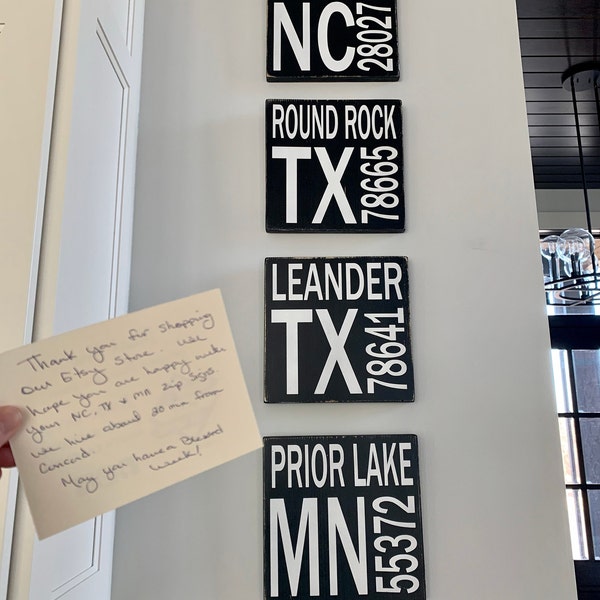 NC 28027
ROUND ROCK
TX 78665
LEANDER
TX 78641
PRIOR LAKE
MN 55372
Thank you for shopping
our Etsy store. We
hope you are happy with
your NC, TX & MN zip signs.
We live about 20 min from
Concord.
May you have a Blessed
week!